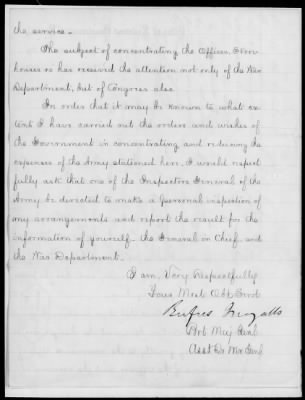 the service.
The subject of concentrating the Offices, Store
houses &c has received the attention not only of the War
Department, but of Congress also.
In order that it may be known to what ex
tent I have carried out the orders and wishes of
the Government in concentrating and reducing the
expenses of the Army stationed here, I would respect
fully ask that one of the Inspectors General of the
Army be directed to make a personal inspection of
my arrangements and report the result for the
information of yourself, the General in Chief, and
the War Department.
I am, Very Respectfully
Your Most Obt. Servt
Rufus Ingalls
Bvt Maj Genl
Asst Qr Mr Genl